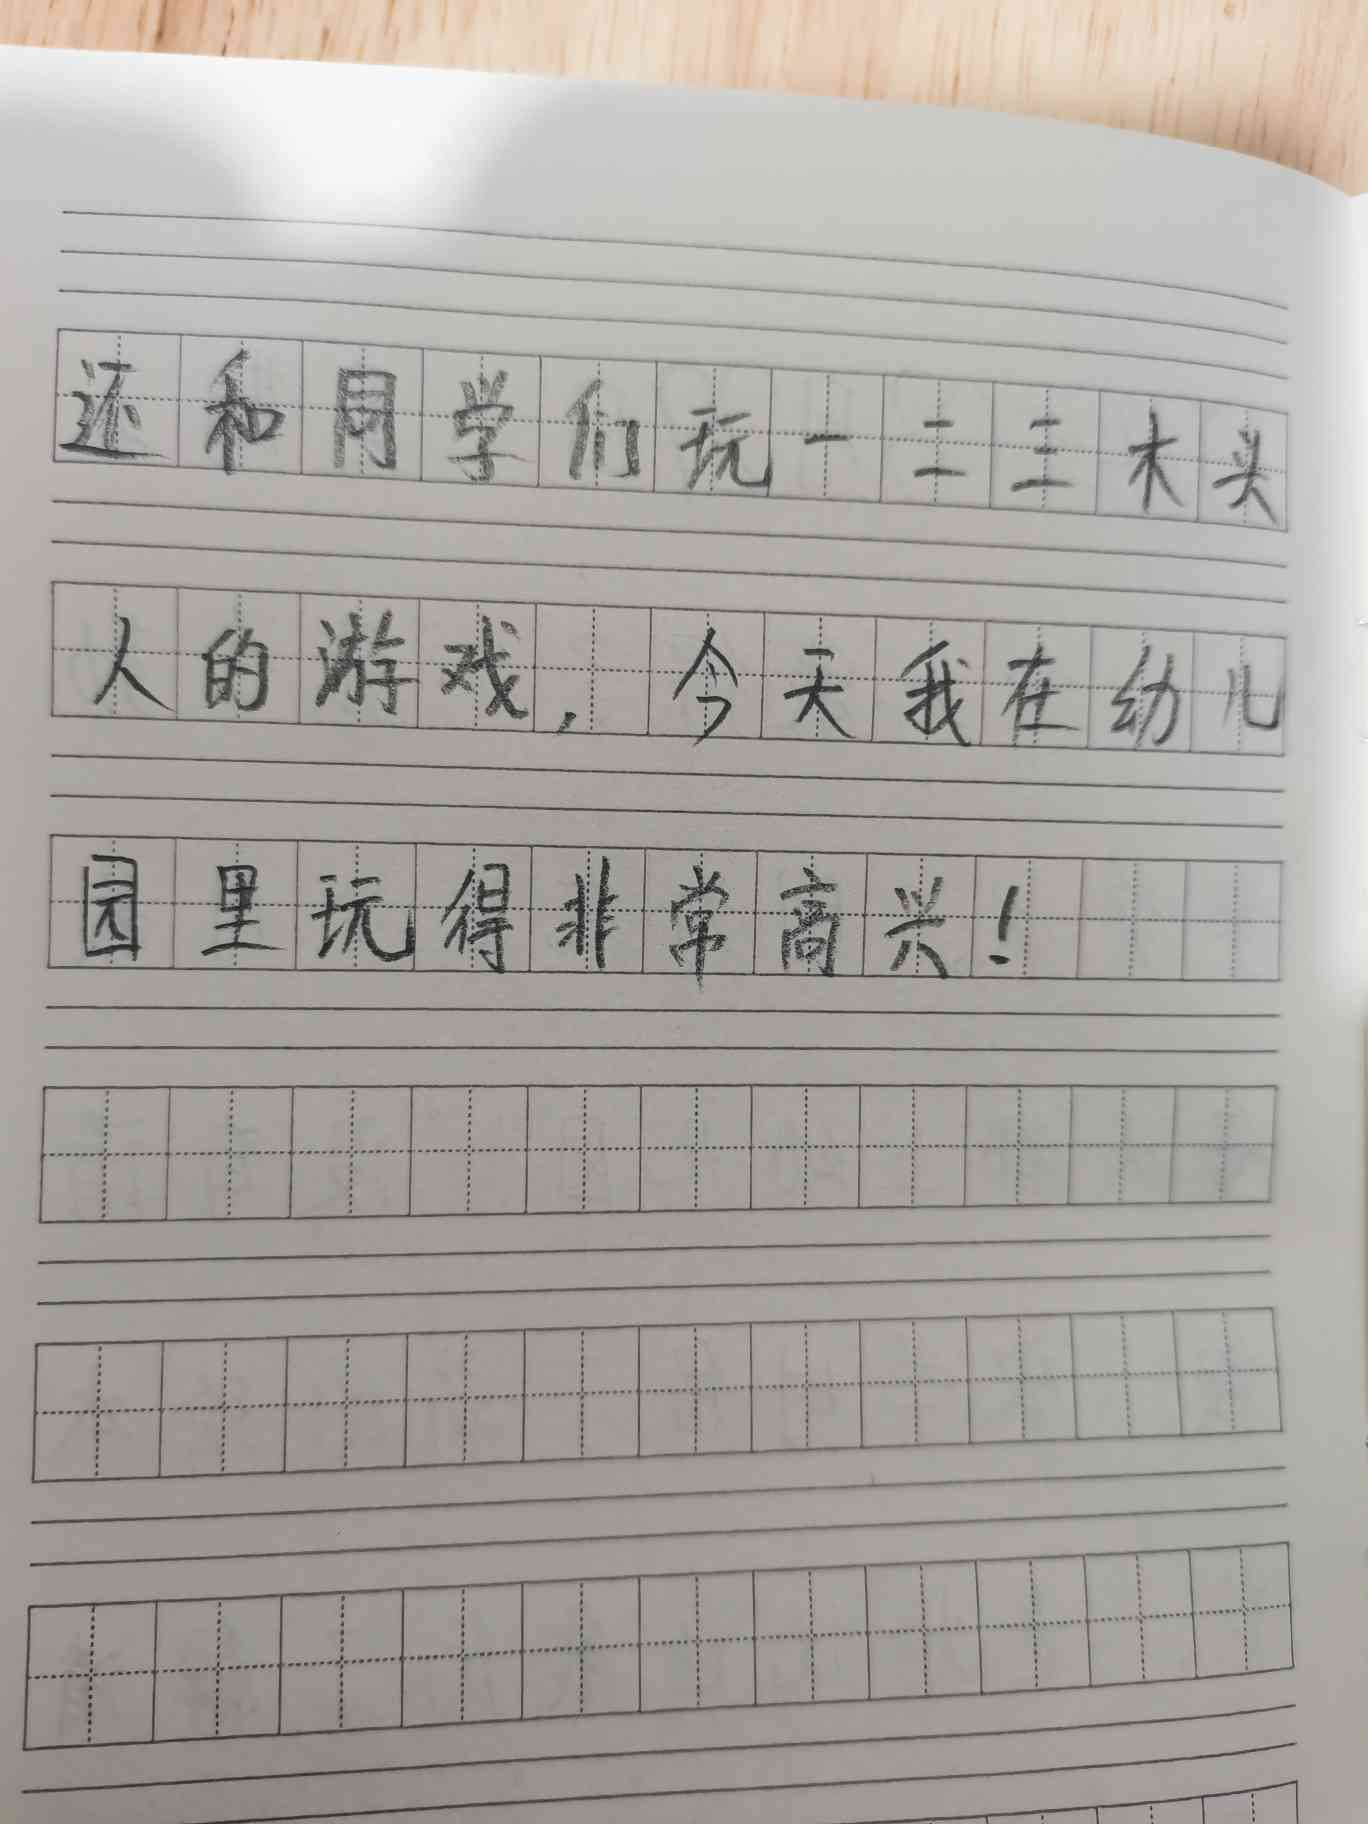 还和同学们玩一二三木头
人的游戏，今天我在幼儿
园里玩得非常高兴！